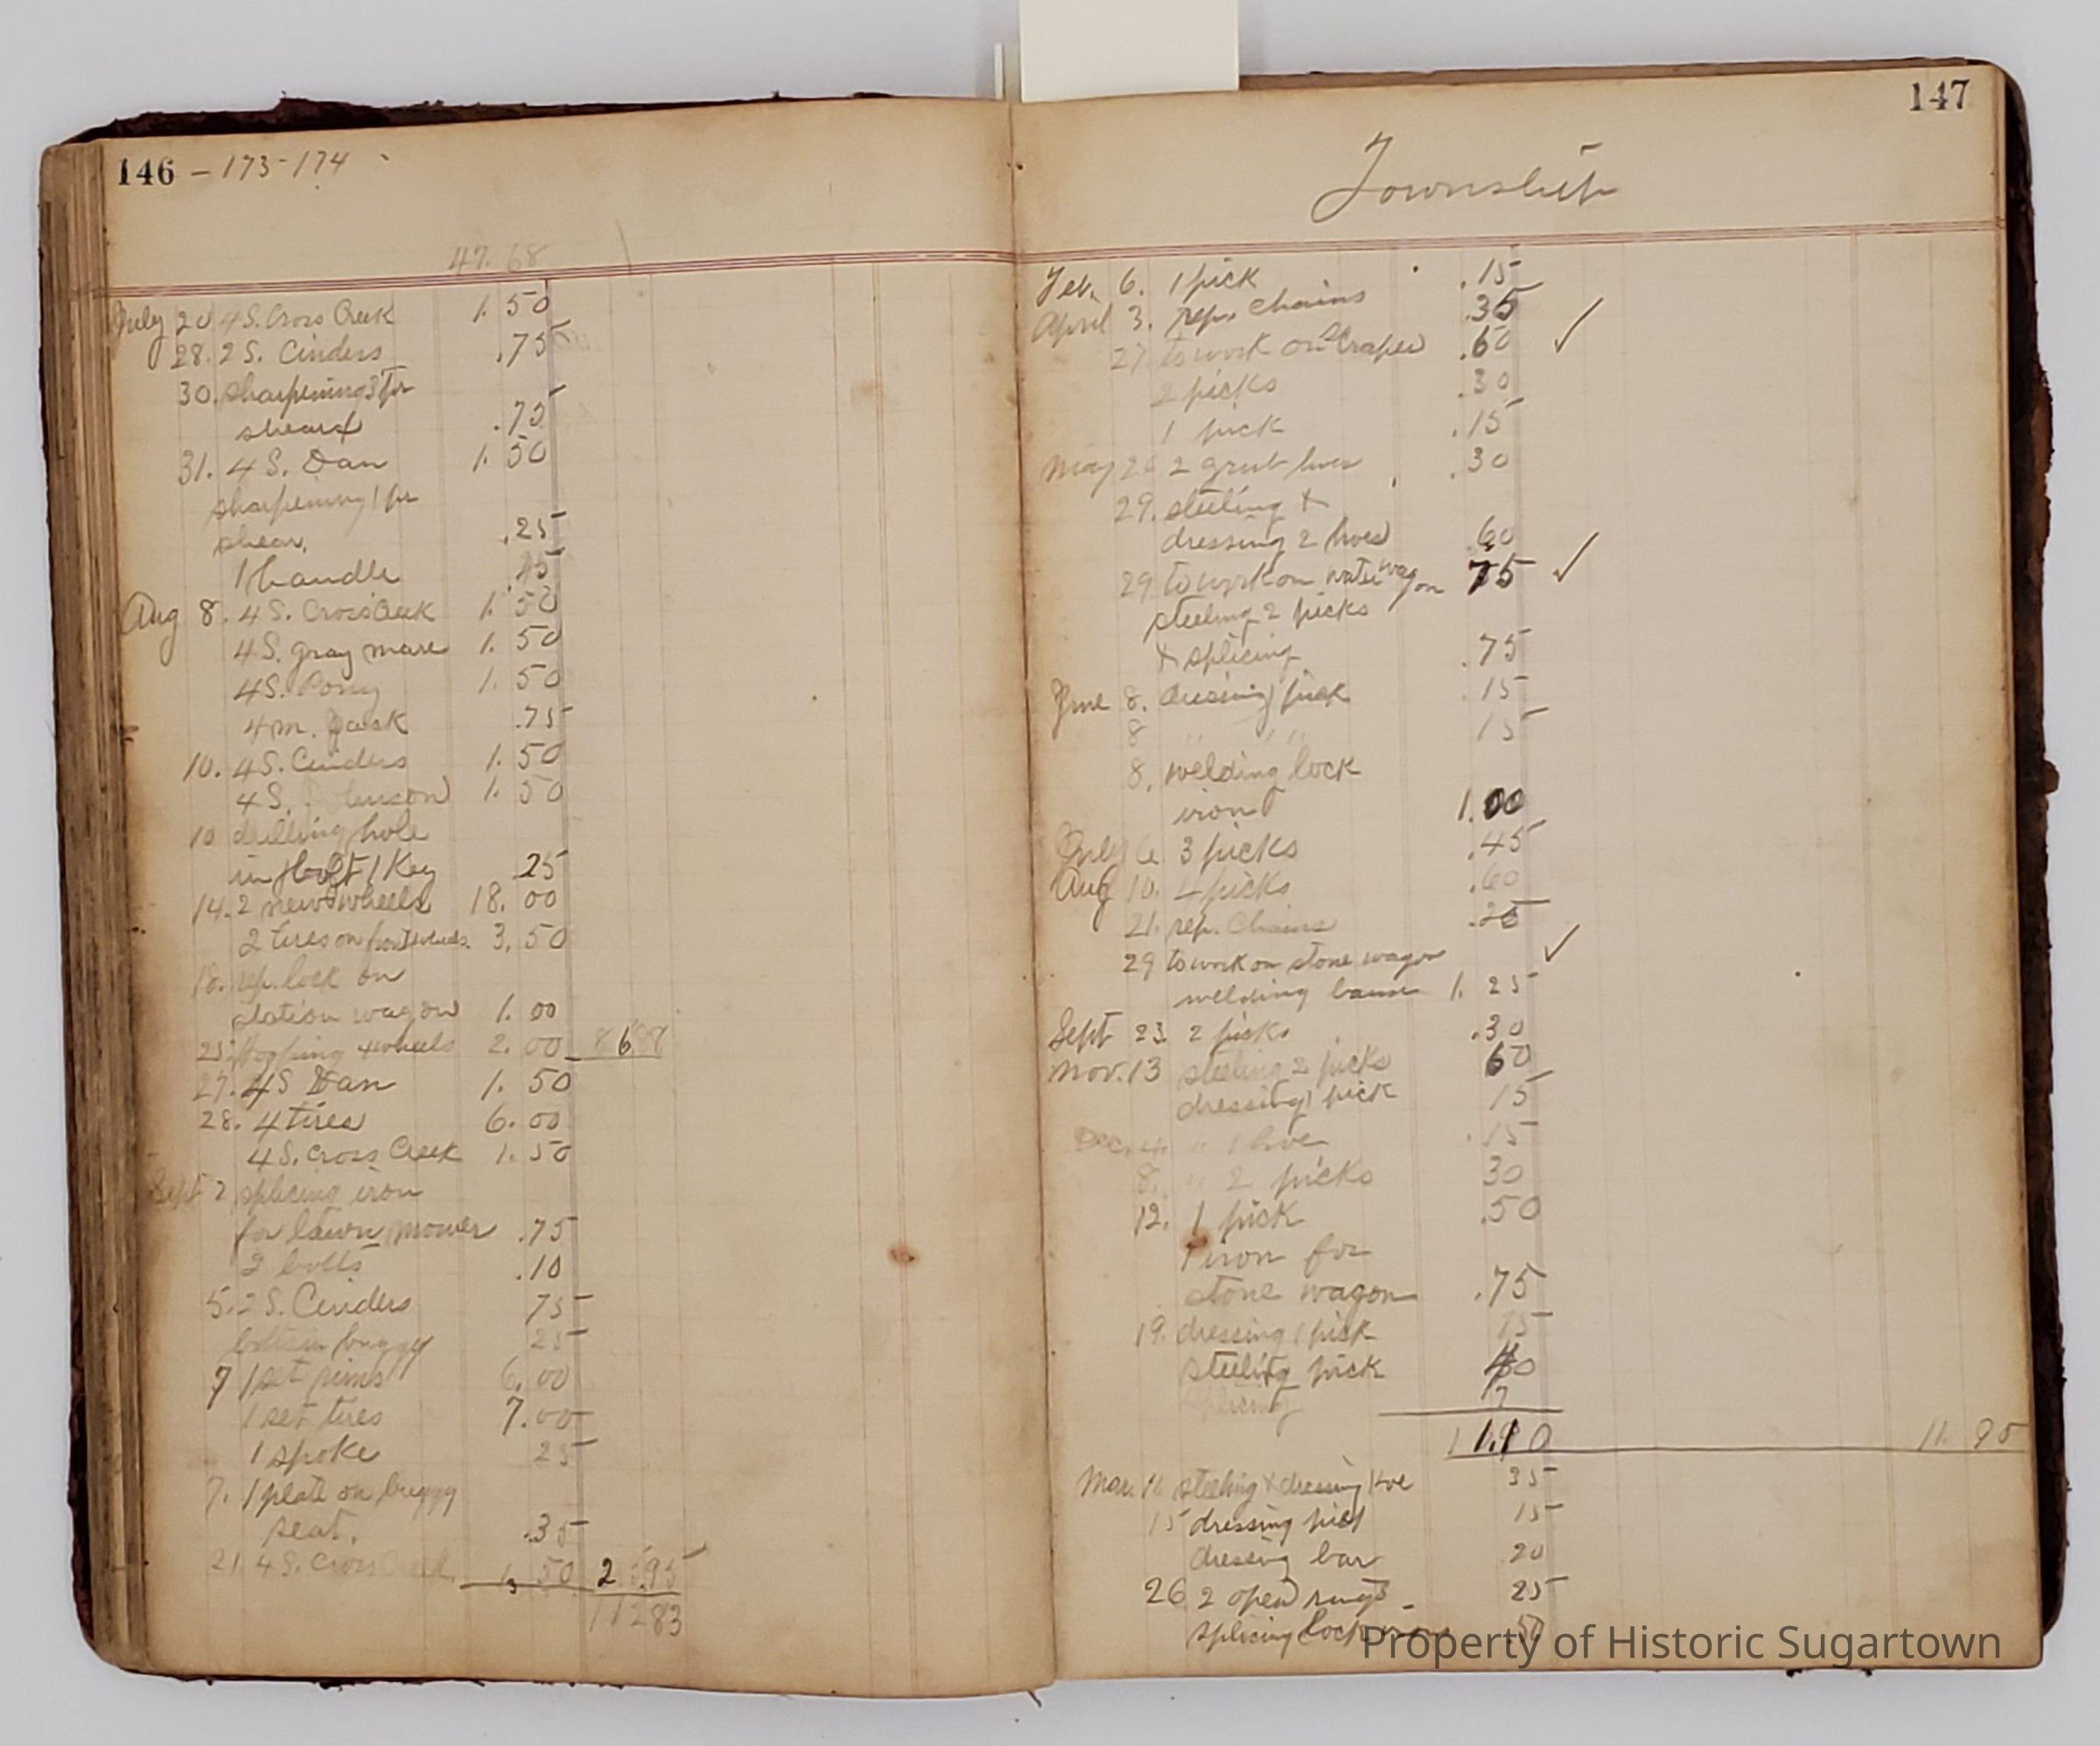 146 - 173-174
47.68
July 20 4 S. Cross Creek 1.50
28. 2 S. Cinders .75
30. sharpening 3 for
shears .75
31. 4 S. Dan 1.50
sharpening 1 pr
shear. .25
1 handle
Aug 8. 4 S. Cross Creek 1.50
4 S. gray mare 1.50
4 S. Pony 1.50
4 m. Jack .75
10. 4 S. Cinders 1.50
4 S. 1.50
10 drilling hole
in bolt 1 Key 25
14. 2 new wheels 18.00
2 tires on front wheels. 3.50
18. rep. lock on
station wagon 1.00
wheels 2.00
27. 4 S Dan 1.50
28. 4 tires 6.00
4 S. Cross Creek 1.50
Sept 2 splicing iron
for lawn mower .75
2 bolts .10
5. 2 S. Cinders 75
bolts in buggy 25
7 1 set rims 6.00
1 set tires 7.00
1 spoke 25
7. 1 plate on buggy
seat. .35
21. 4 S. Cross Creek 1.50
112 83
147
Township
Feb. 6. 1 pick .15
April 3. rep. chains .35
27 to work on Scraper .60
2 picks .30
1 pick .15
May 2 grub hoes .30
29. steeling +
dressing 2 hoes .60
29 to work on water wagon 75
steeling 2 picks
+ splicing .75
June 8. dressing 1 pick .15
8 " 1 " 15
8. welding lock
iron 1.00
July 6 3 picks .45
Aug 10. 4 picks .60
21. rep. Chains
29 to work on stone wagon
welding 1.25
Sept 23. 2 picks .30
Nov. 13 steeling 2 picks 60
dressing 1 pick 15
Dec. 4 " 1 hoe .15
8. " 2 picks 30
12. 1 pick .50
1 iron for
stone wagon .75
19. dressing 1 pick 15
steeling pick
splicing
11. 95
Mar. steeling + dressing hoe 35
15 dressing pick 15
dressing bar 20
26 2 open rings 25
splicing lock .50
Property of Historic Sugartown